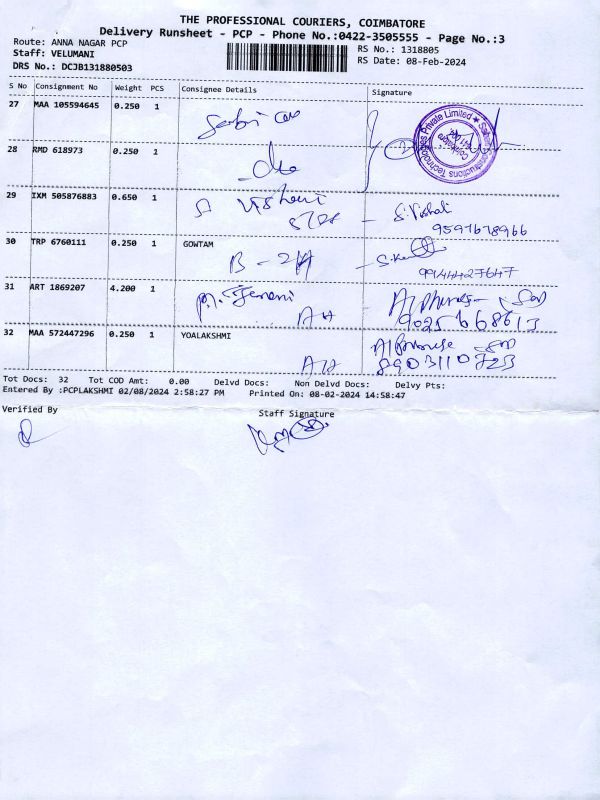 THE PROFESSIONAL COURIERS, COIMBATORE
Delivery Runsheet - PCP - Phone No.:0422-3505555 - Page No.:3
Route: ANNA NAGAR PCP
RS No.: 1318805
Staff: VELUMANI
RS Date: 08-Feb-2024
DRS No.: DCJB131880503
S No Consignment No Weight PCS Consignee Details Signature
27 MAA 105594645 0.250 1
28 RMD 618973 0.250 1
29 IXM 505876883 0.650 1
S. Vishali
9597678966
30 TRP 6760111 0.250 1 GOWTAM
B - 24
9944427647
31 ART 1869207 4.200 1
9025668613
32 MAA 572447296 0.250 1 YOALAKSHMI
8903110723
Tot Docs: 32 Tot COD Amt: 0.00 Delvd Docs: Non Delvd Docs: Delvy Pts:
Entered By :PCPLAKSHMI 02/08/2024 2:58:27 PM Printed On: 08-02-2024 14:58:47
Verified By
Staff Signature